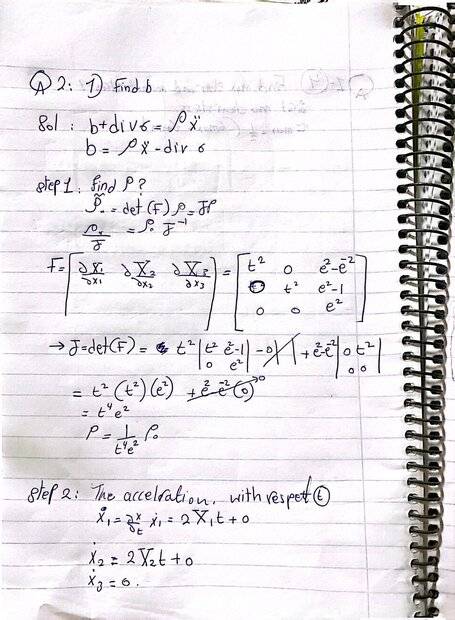 Q 2: 1) Find b
Sol: b + div σ = ρ ẍ
b = ρ ẍ - div σ
step 1: find ρ?
ρ̃₀ = det(F) ρ = Jρ
ρ₀/J = ρ₀ J⁻¹
F = [∂X₁/∂x₁ ∂X₂/∂x₂ ∂X₃/∂x₃] = [t² 0 e²-e⁻² ; 0 t² e²-1 ; 0 0 e²]
→ J = det(F) = t² |t² e²-1 ; 0 e²| - 0 + e²-e⁻² |0 t² ; 0 0|
= t² (t²)(e²) + e²-e⁻²(0) → 0
= t⁴e²
ρ = 1/t⁴e² ρ₀
step 2: The accelration, with respet (t)
ẋ₁ = ∂x/∂t ẋ₁ = 2X₁t + 0
ẋ₂ = 2X₂t + 0
ẋ₃ = 0.